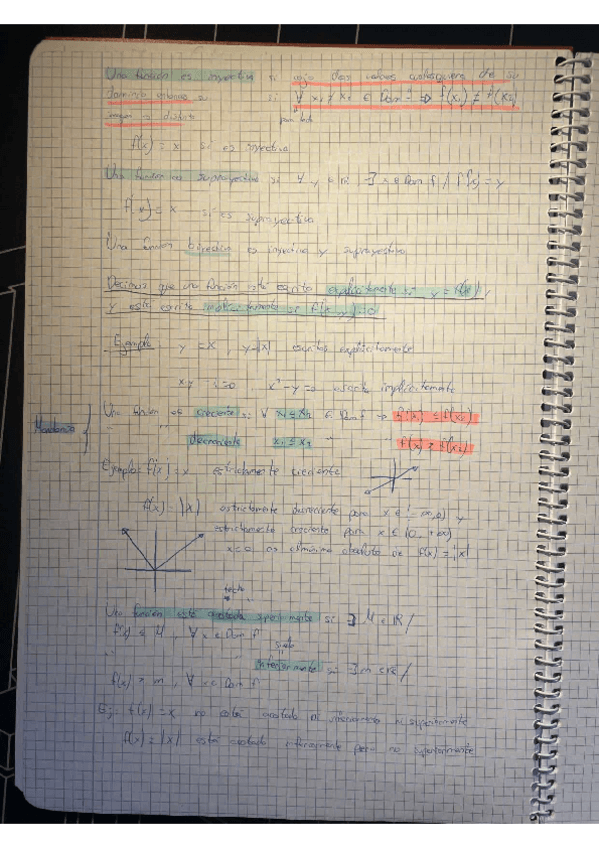 Una función es inyectiva si cojo dos valores cualesquiera de su
dominio si ∀ x₁ ≠ x₂ ∈ Dom f ⇒ f(x₁) ≠ f(x₂)
imagen es distinta para todo
f(x) = x si es inyectiva
Una función es suprayectiva si ∀ y ∈ R ∃ x ∈ Dom f / f(x) = y
f(x) = x si es suprayectiva
Una función biyectiva es inyectiva y suprayectiva
Decimos que una función está escrita explícitamente si y = f(x)
y está escrita implícitamente si f(x,y)=0
Ejemplo y = x, y=|x| escritas explícitamente
x² - y = 0 implícitamente
Una función es creciente si ∀ x₁ ≤ x₂ ∈ Dom f → f(x₁) ≤ f(x₂)
Monótonas
" " decreciente x₁ ≤ x₂ " f(x₁) ≥ f(x₂)
Ejemplo: f(x) = x estrictamente creciente
f(x) = |x| estrictamente decreciente para x ∈ (-∞,0) y
estrictamente creciente para x ∈ (0, +∞)
x=0 es mínimo absoluto de f(x) = |x|
techo
Una función está acotada superiormente si ∃ M ∈ R /
f(x) ≤ M, ∀ x ∈ Dom f
suelo
" inferiormente si ∃ m ∈ R /
f(x) ≥ m, ∀ x ∈ Dom f
Ej: f(x) = x no está acotada ni inferiormente ni superiormente
f(x) = |x| está acotada inferiormente pero no superiormente